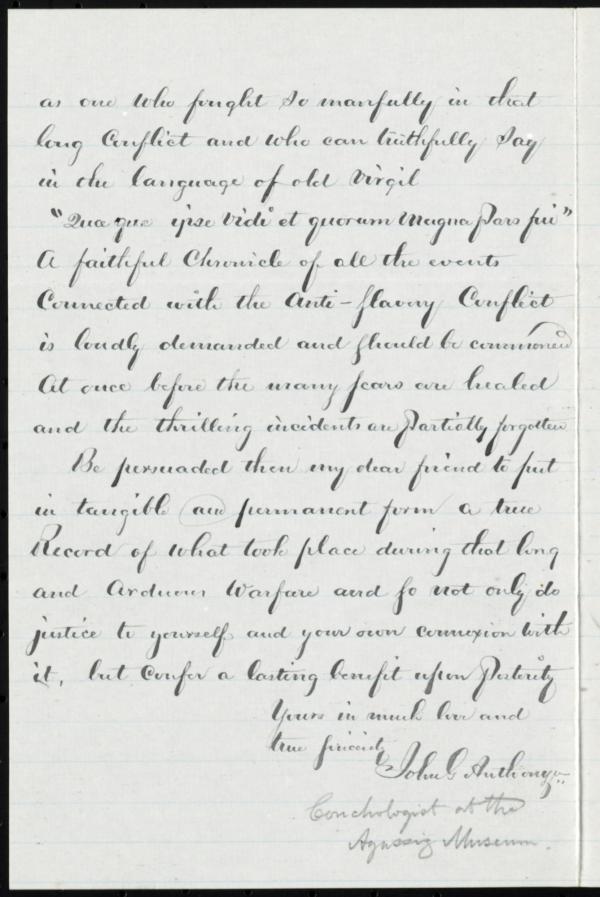 as one who fought so manfully in that
long Conflict and who can truthfully say
in the language of old Virgil
"Quæ que ipse vidi et quorum magna Pars fui"
A faithful Chronicle of all the events
Connected with the Anti-slavery Conflict
is loudly demanded and should be commenced
at once before the many scars are healed
and the thrilling incidents are Partially forgotten
Be persuaded then my dear friend to put
in tangible and permanent form a true
Record of what took place during that long
and Arduous Warfare and so not only do
justice to yourself and your own connexion with
it, but confer a lasting benefit upon Posterity
Yours in much love and
true sincerity
John G Anthony
Conchologist at the
Agassiz Museum.